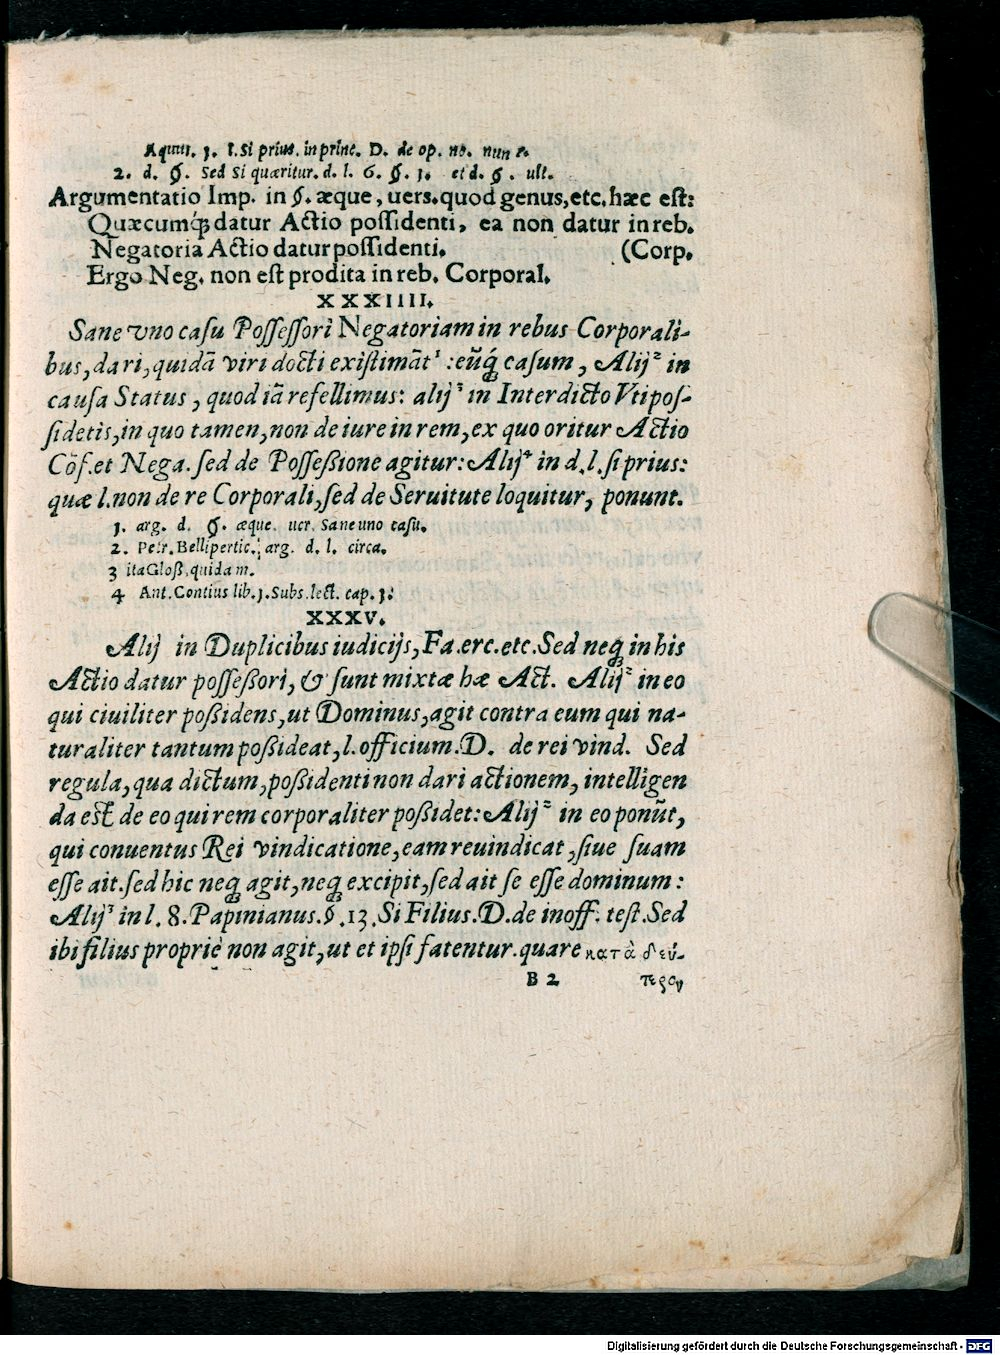 Aquut. 1. l. si prius. in princ. D. de op. no. nun t.
2. d. §. Sed si quæritur. d. l. 6. §. 1. et d. §. ult.
Argumentatio Imp. in §. æque, uers. quod genus, etc. hæc est:
Quæcumq́; datur Actio possidenti, ea non datur in reb.
Negatoria Actio datur possidenti. (Corp.
Ergo Neg. non est prodita in reb. Corporal.
XXXIIII.
Sane vno casu Possessori Negatoriam in rebus Corporali-
bus, dari, quidā viri docti existimāt¹: eūq́; casum, Alij² in
causa Status, quod iā refellimus: alij³ in Interdicto Vtipos-
sidetis, in quo tamen, non de iure in rem, ex quo oritur Actio
Cōf. et Nega. sed de Possessione agitur: Alij⁴ in d. l. si prius:
quæ l. non de re Corporali, sed de Seruitute loquitur, ponunt.
1. arg. d. §. æque. uer. Sane uno casu.
2. Petr. Bellipertic. arg. d. l. circa.
3 ita Gloss. quidam.
4 Ant. Contius lib. 1. Subs. lect. cap. 1.
XXXV.
Alij in Duplicibus iudicijs, Fa. erc. etc. Sed neq; in his
Actio datur possessori, & sunt mixtæ hæ Act. Alij² in eo
qui ciuiliter possidens, ut Dominus, agit contra eum qui na-
turaliter tantum possideat, l. officium. D. de rei vind. Sed
regula, qua dictum, possidenti non dari actionem, intelligen
da est de eo qui rem corporaliter possidet: Alij² in eo ponūt,
qui conuentus Rei vindicatione, eam reuindicat, siue suam
esse ait. sed hic neq; agit, neq; excipit, sed ait se esse dominum:
Alij³ in l. 8. Papinianus. §. 13. Si Filius. D. de inoff. test. Sed
ibi filius propriè non agit, ut et ipsi fatentur. quare κατὰ δεύ-
B 2 τερον
Digitalisierung gefördert durch die Deutsche Forschungsgemeinschaft - DFG